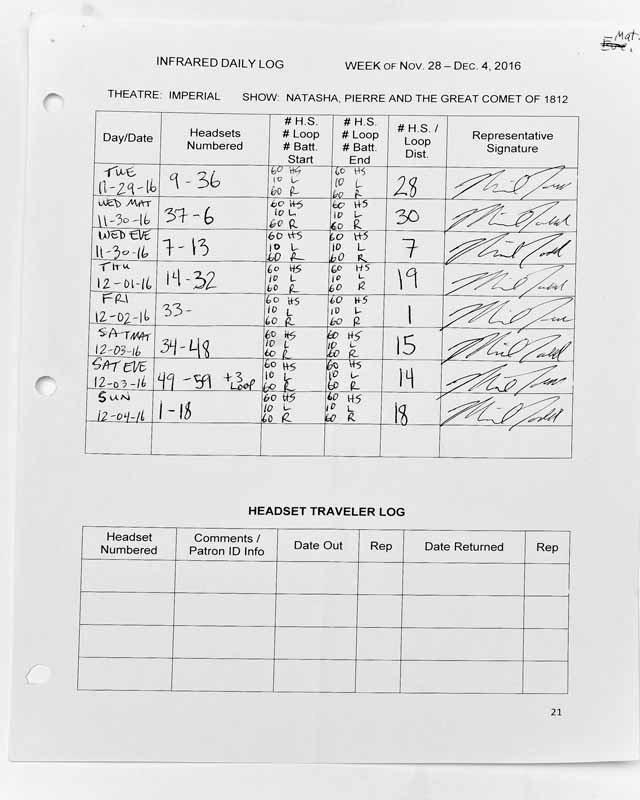 Mat.
Eve.
INFRARED DAILY LOG WEEK OF NOV. 28 – DEC. 4, 2016
THEATRE: IMPERIAL SHOW: NATASHA, PIERRE AND THE GREAT COMET OF 1812
Day/Date
Headsets
Numbered
# H.S.
# Loop
# Batt.
Start
# H.S.
# Loop
# Batt.
End
# H.S. /
Loop
Dist.
Representative
Signature
TUE
11-29-16
9-36
60 HS
10 L
60 R
60 HS
10 L
60 R
28
WED MAT
11-30-16
37-6
60 HS
10 L
60 R
60 HS
10 L
60 R
30
WED EVE
11-30-16
7-13
60 HS
10 L
60 R
60 HS
10 L
60 R
7
THU
12-01-16
14-32
60 HS
10 L
60 R
60 HS
10 L
60 R
19
FRI
12-02-16
33-
60 HS
10 L
60 R
60 HS
10 L
60 R
1
SAT MAT
12-03-16
34-48
60 HS
10 L
60 R
60 HS
10 L
60 R
15
SAT EVE
12-03-16
49-59 +3
Loop
60 HS
10 L
60 R
60 HS
10 L
60 R
14
SUN
12-04-16
1-18
60 HS
10 L
60 R
60 HS
10 L
60 R
18
HEADSET TRAVELER LOG
Headset
Numbered
Comments /
Patron ID Info
Date Out
Rep
Date Returned
Rep
21